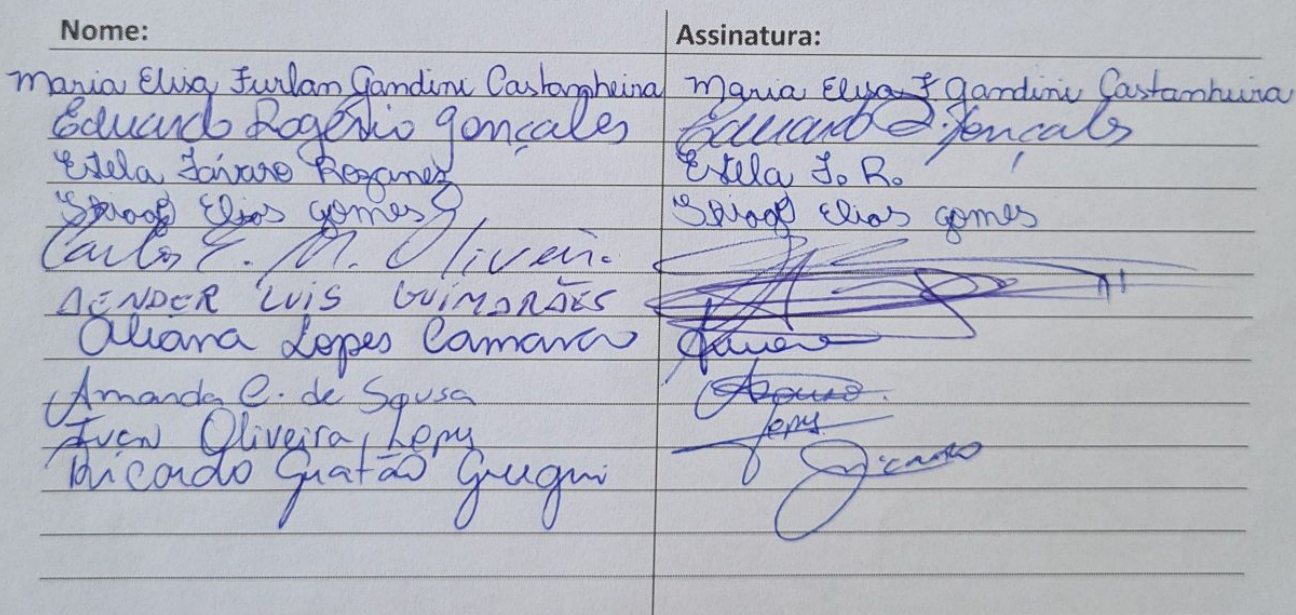 Nome: Assinatura:
Maria Elisa Furlan Gandini Castanheira Maria Elisa F Gandini Castanheira
Eduardo Rogério Gonçales Eduardo R. Gonçales
Estela Fávaro Estela F. R.
Elias Gomes Elias Gomes
Carlos E. M. Oliveira
AENDER LUIS GUIMARÃES
Lopes Camara
Amanda C. de Sousa Asousa
Oliveira Lopes Lopes
Ricardo Gratão Gregui Ricardo